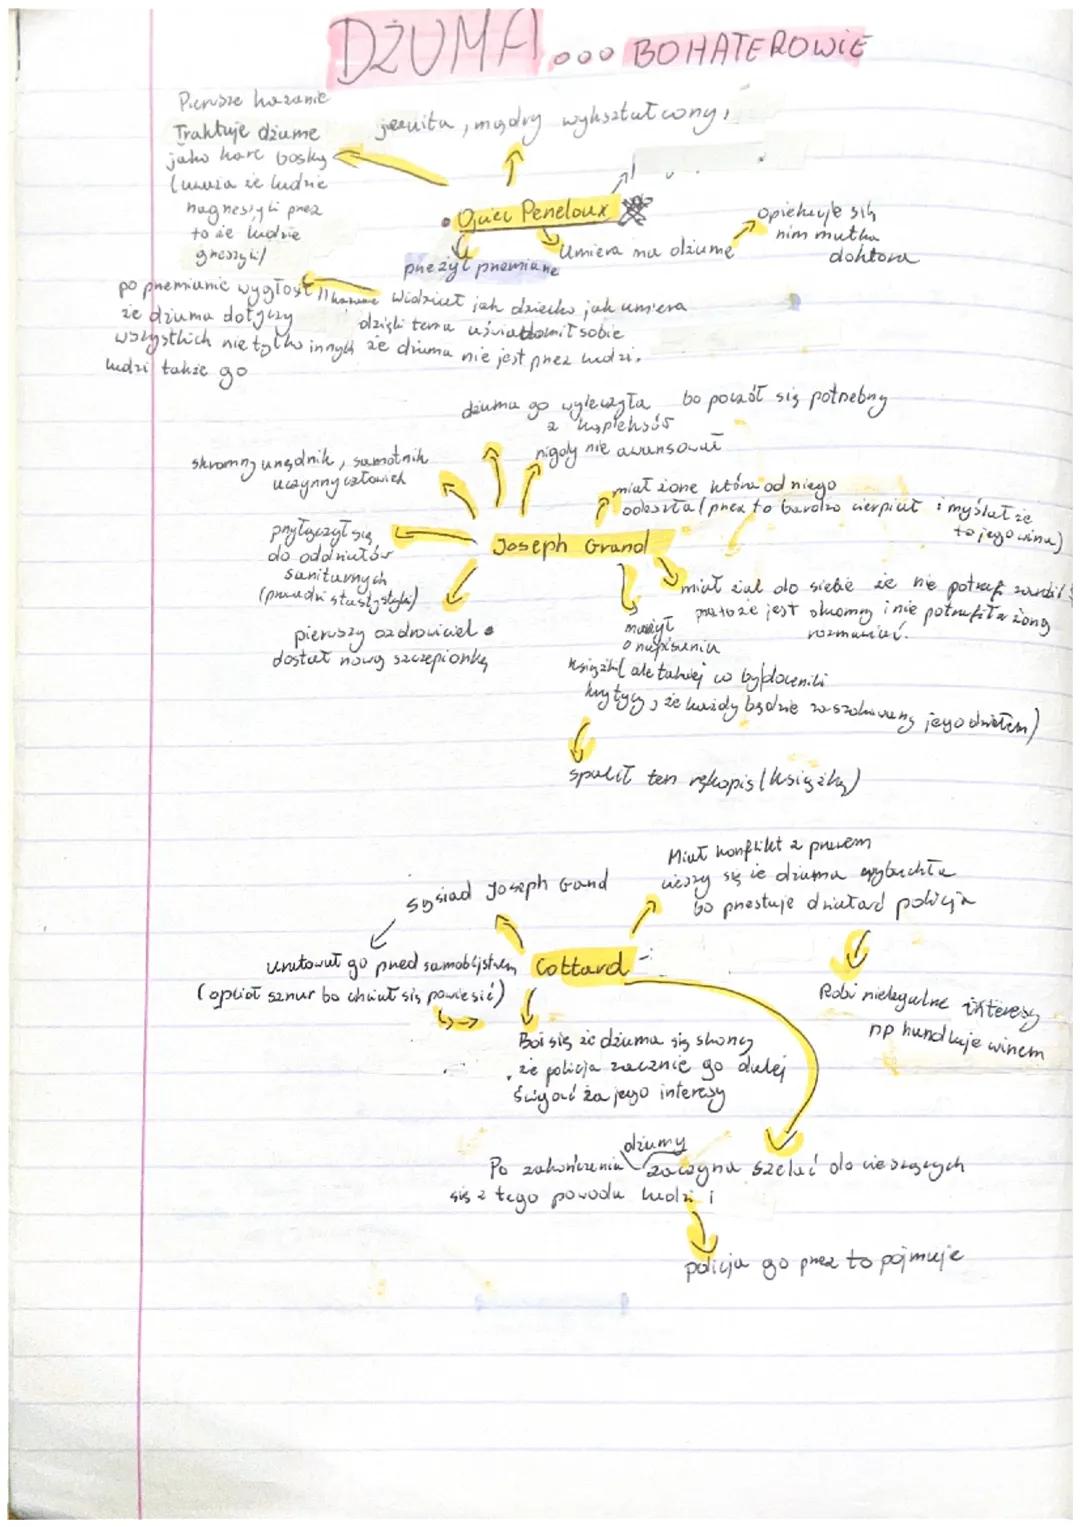 DŻUMA... BOHATEROWIE
Pierwsze kazanie
Traktuje dżume
jako kare boską
(uważa że ludzie
nagrzeszyli przez
to że ludzie
grzeszyli)
jezuita, mądry wykształcony,
• Ojciec Peneloux
Umiera na dżumę
opiekuje sih
nim matka
doktora
przeżył przemiane
po przemianie wygłosił II kazanie
że dżuma dotyczy
wszystkich nie tylko innych
ludzi także go
Widział jak dziecko jak umiera
dzięki temu uświadomił sobie
że dżuma nie jest przez ludzi.
dżuma go wyleczyła
z kopleksów
bo poczół się potrzebny
nigdy nie awansował
skromny urzędnik, samotnik
uczynny człowiek
miał żone która od niego
odeszła (przez to bardzo cierpiał i myślał że
to jego wina)
Joseph Grand
przyłączył się
do oddziałów
sanitarnych
(prowadzi stastystyki)
miał żal do siebie że nie potrafi
że jest skromny i nie potrafił z żoną
rozmawiać.
pierwszy ozdrowiciel •
dostał nową szczepionkę
marzył
o napisaniu
książki (ale takiej co by docenili
krytycy, że każdy będzie zaszokowany jego dziełem)
spalił ten rękopis (książkę)
Miał konflikt z prawem
cieszy się że dżuma wybuchła
bo przestuje działać policja
sąsiad Joseph Grand
uratował go przed samobójstwem
(opciął sznur bo chciał się powiesić)
Cottard
Robi nielegalne interesy
np handluje winem
Boi się że dżuma się skończy
że policja zacznie go dalej
ścigać za jego interesy
dżumy
Po zakończenia zaczyna szelać do cieszących
się z tego powodu ludzi i
policja go przez to pojmuje